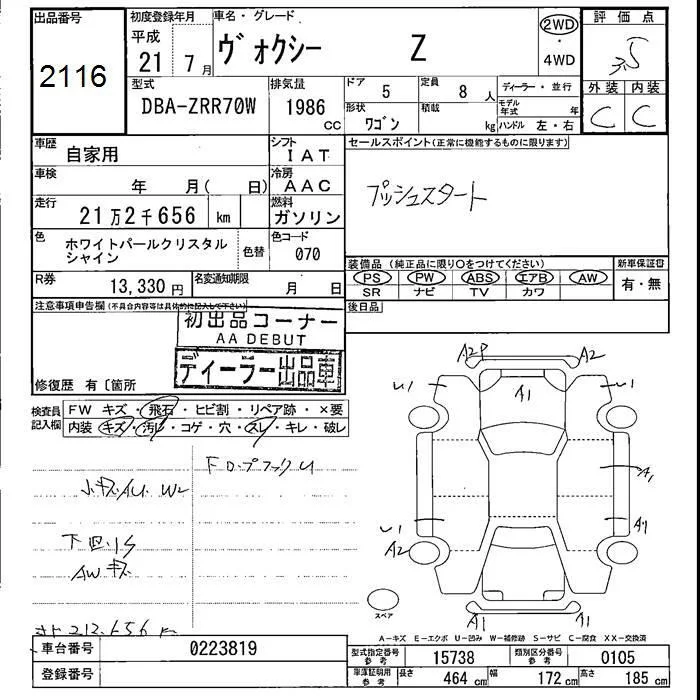 出品番号
2116
初度登録年月
平成
21 7月
車名・グレード
ヴォクシー Z
2WD
・
4WD
評価点
3.5
外装 内装
C C
型式
DBA-ZRR70W
排気量
1986
CC
ドア
5
定員
8 人
形状
ワゴン
積載
kg
ディーラー・並行
モデル年式 年
ハンドル 左・右
車歴
自家用
シフト
IAT
セールスポイント(正常に機能するものに限ります)
プッシュスタート
車検
年 月( 日)
冷房
AAC
走行
21万2千656 km
燃料
ガソリン
色
ホワイトパールクリスタル
シャイン
色替
色コード
070
R券
13,330円
名変通知期限
月 日
装備品(純正品に限り○をつけてください)
PS PW ABS エアB AW
SR ナビ TV カワ
新車保証書
有・無
後日品
注意事項申告欄(不具合内容等は具体的に記入して下さい)
初出品コーナー
AA DEBUT
ディーラー出品車
修復歴 有〔箇所
検査員
記入欄
FW キズ・飛石・ヒビ割・リペア跡・×要
内装 キズ・汚レ・コゲ・穴・スレ・キレ・破レ
小キズAU. W2
下回りS
AWキズ
212.656 K
A2P A2
A1
U1 U1
A1
U1 A1
A2
A1 A1
スペア
A-キズ E-エクボ U-凹み W-補修跡 S-サビ C-腐食 XX-交換済
車台番号
0223819
登録番号
型式指定番号
参考
15738
類別区分番号
参考
0105
車庫証明用
参考
長さ
464 cm
幅
172 cm
高さ
185 cm